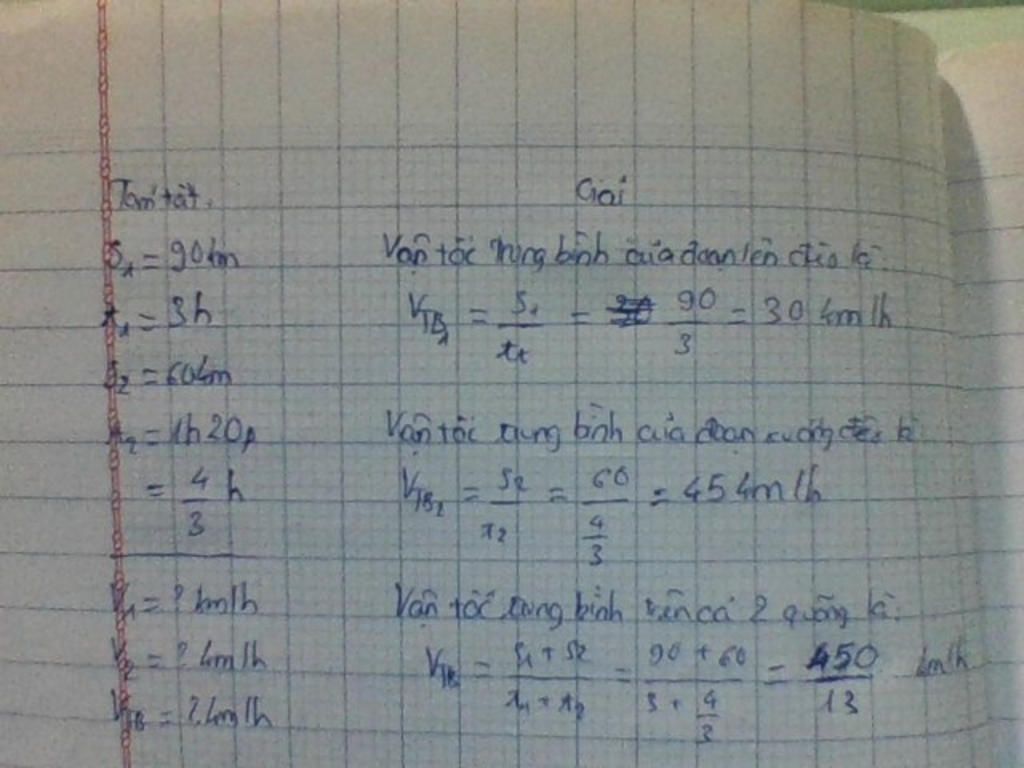 Tóm tắt.
S₁ = 90km
t₁ = 3h
S₂ = 60km
t₂ = 1h20p
= 4/3 h
V₁ = ? km/h
V₂ = ? km/h
V_TB = ? km/h
Giải
Vận tốc trung bình của đoạn lên đèo là:
V_TB₁ = S₁/t₁ = 90/3 = 30 km/h
Vận tốc trung bình của đoạn xuống đèo là
V_TB₂ = S₂/t₂ = 60/(4/3) = 45 km/h
Vận tốc trung bình trên cả 2 quãng là:
V_TB = (S₁ + S₂)/(t₁ + t₂) = (90 + 60)/(3 + 4/3) = 450/13 km/h